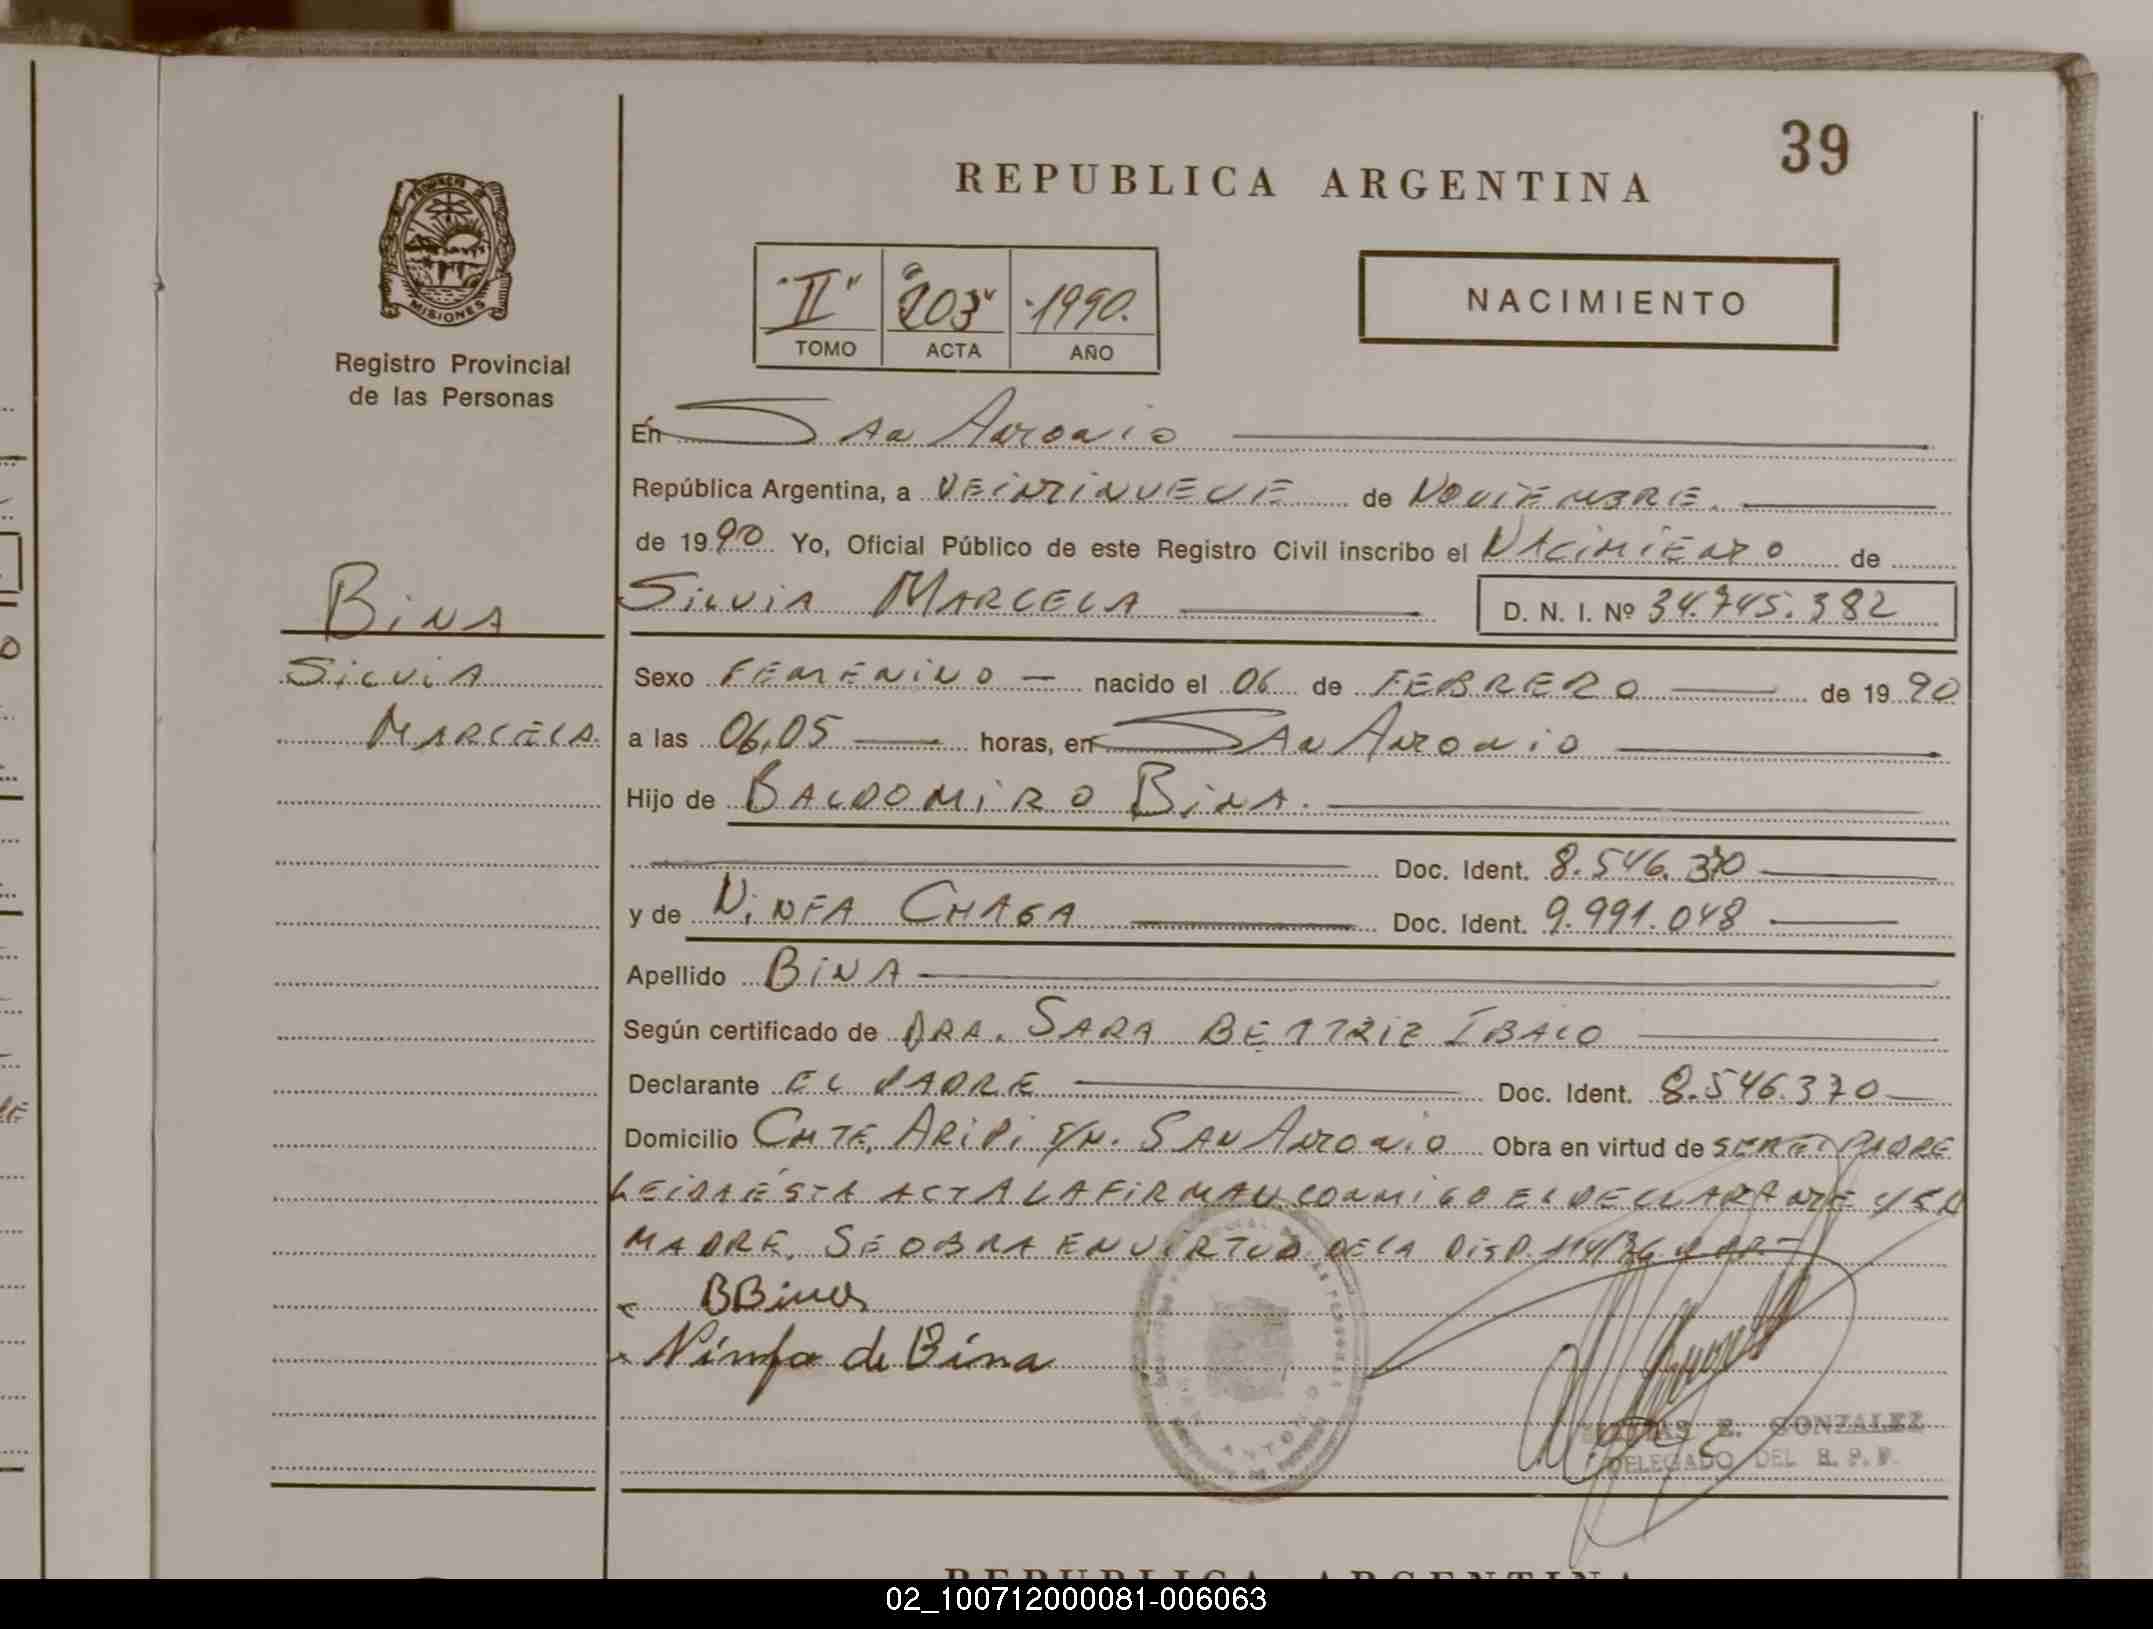 39
REPUBLICA ARGENTINA
PROVINCIA DE
MISIONES
Registro Provincial
de las Personas
"II" "203" "1990."
TOMO ACTA AÑO
NACIMIENTO
En San Antonio
República Argentina, a VEINTINUEVE de NOVIEMBRE.
de 1990 Yo, Oficial Público de este Registro Civil inscribo el NACIMIENTO de
SILVIA MARCELA
D. N. I. Nº 34.745.382
BINA
SILVIA
MARCELA
Sexo FEMENINO nacido el 06 de FEBRERO de 1990
a las 06,05 horas, en SAN ANTONIO
Hijo de BALDOMIRO BINA.
Doc. Ident. 8.546.370
y de NINFA CHAGA Doc. Ident. 9.991.048
Apellido BINA
Según certificado de DRA. SARA BEATRIZ IBALO
Declarante EL PADRE Doc. Ident. 8.546.370
Domicilio CMTE. ARIPI S/N. SAN ANTONIO Obra en virtud de SER EL PADRE
LEIDA ÉSTA ACTA LA FIRMAN CONMIGO EL DECLARANTE Y LA
MADRE. SE OBRA EN VIRTUD DE LA DISP. 114/86
BBina
Ninfa de Bina
E. GONZALEZ
DELEGADO DEL R. P. P.
REPUBLICA ARGENTINA
02_100712000081-006063